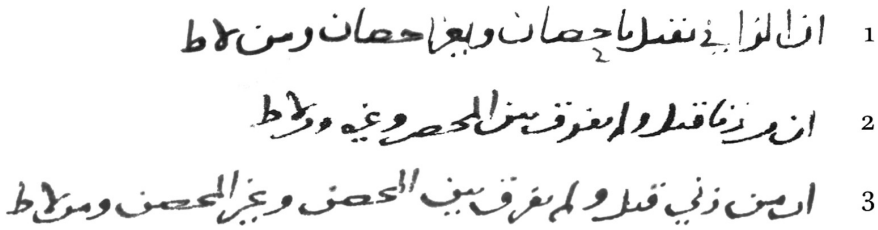 1 ان الزاني يقتل باحصان وبغير احصان ومن لاط
2 ان من زنا قتل ولم يفرق بين المحصن وغيره ومن لاط
3 ان من زني قتل ولم يفرق بين المحصن وغير المحصن ومن لاط